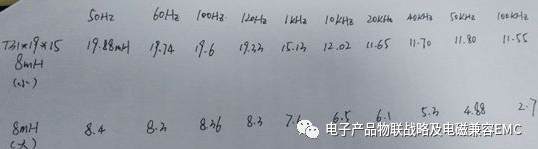 50Hz 60Hz 100Hz 120Hz 1kHz 10kHz 20kHz 40kHz 50kHz 100kHz
T31*19*15 19.88mH 19.74 19.6 19.33 15.13 12.02 11.65 11.70 11.80 11.55
8mH
(小)
8mH 8.4 8.3 8.36 8.3 7. 6.5 6.1 5.3 4.88 2.7
(大)
电子产品物联战略及电磁兼容EMC